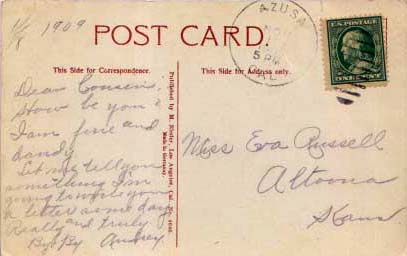 1/8 1909
POST CARD.
AZUSA
5 PM
CAL.
U.S. POSTAGE
ONE CENT
This Side for Correspondence.
This Side for Address only.
Dear Cousin,
How be you?
I am fine and
dandy.
Let me tell you
something I'm
going to write you
a letter some day
Really and truly.
By By
Published by M. Rieder, Los Angeles, Cal. No.
Made in Germany.
Miss Eva Russell
Altoona
Kans